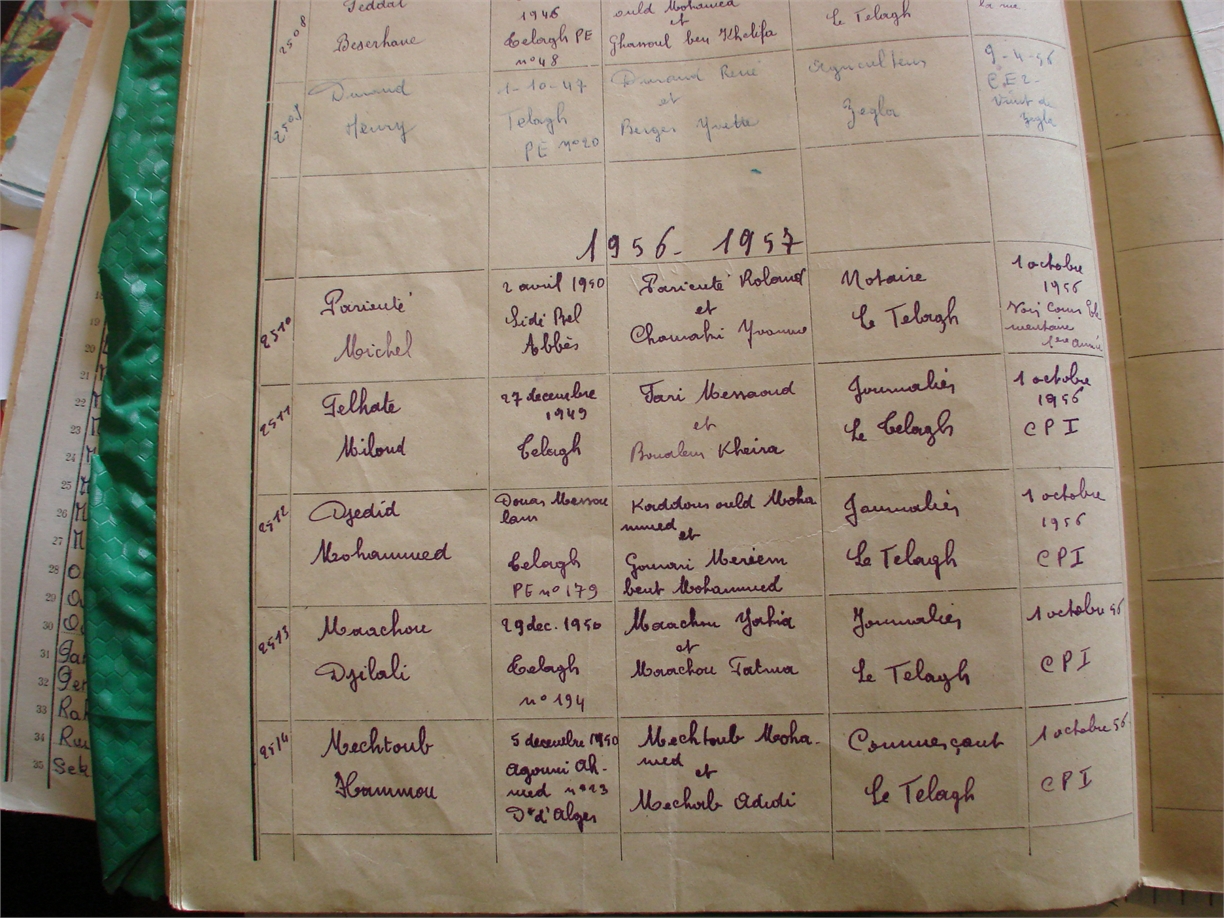 2508
Seddat
Beserhane
1946
Telagh PE
n° 48
ould Mohamed
et
Ghassoul ben Khelifa
Le Telagh
la rue.
Durand
Henry
1-10-47
Telagh
PE n° 20
Durand René
et
Berger Yvette
Agriculteur
Zegla
9-4-56
CE2-
Vient de
Zegla
1956-1957
2510
Pariente
Michel
2 avril 1950
Sidi Bel
Abbès
Pariente Roland
et
Yvonne
Notaire
Le Telagh
1 octobre
1956
Voir Cours Elé
mentaire
1ère Année
2511
Felhate
Miloud
27 decembre
1949
Telagh
Fari Messaoud
et
Boudlem Kheira
Journalier
Le Telagh
1 octobre
1956
CPI
2512
Djedid
Mohammed
Douar Messou
lam
Telagh
PE n° 179
Kaddour ould Moha
mmed
et
Gouari Meriem
bent Mohammed
Journalier
Le Telagh
1 octobre
1956
CPI
2513
Maachou
Djilali
29 dec. 1950
Telagh
n° 194
Maachou Yahia
et
Maachou Fatma
Journalier
Le Telagh
1 octobre 56
CPI
2514
Mechtoub
Hammou
5 decembre 1950
Agouni Ah-
med n° 23
Dt d'Alger
Mechtoub Moha-
med
et
Mechtoub Adidi
Commerçant
Le Telagh
1 octobre 56
CPI
19
20
21
22
23
24
25
26
27
28
29
30
31
32
33
34
35
Sek